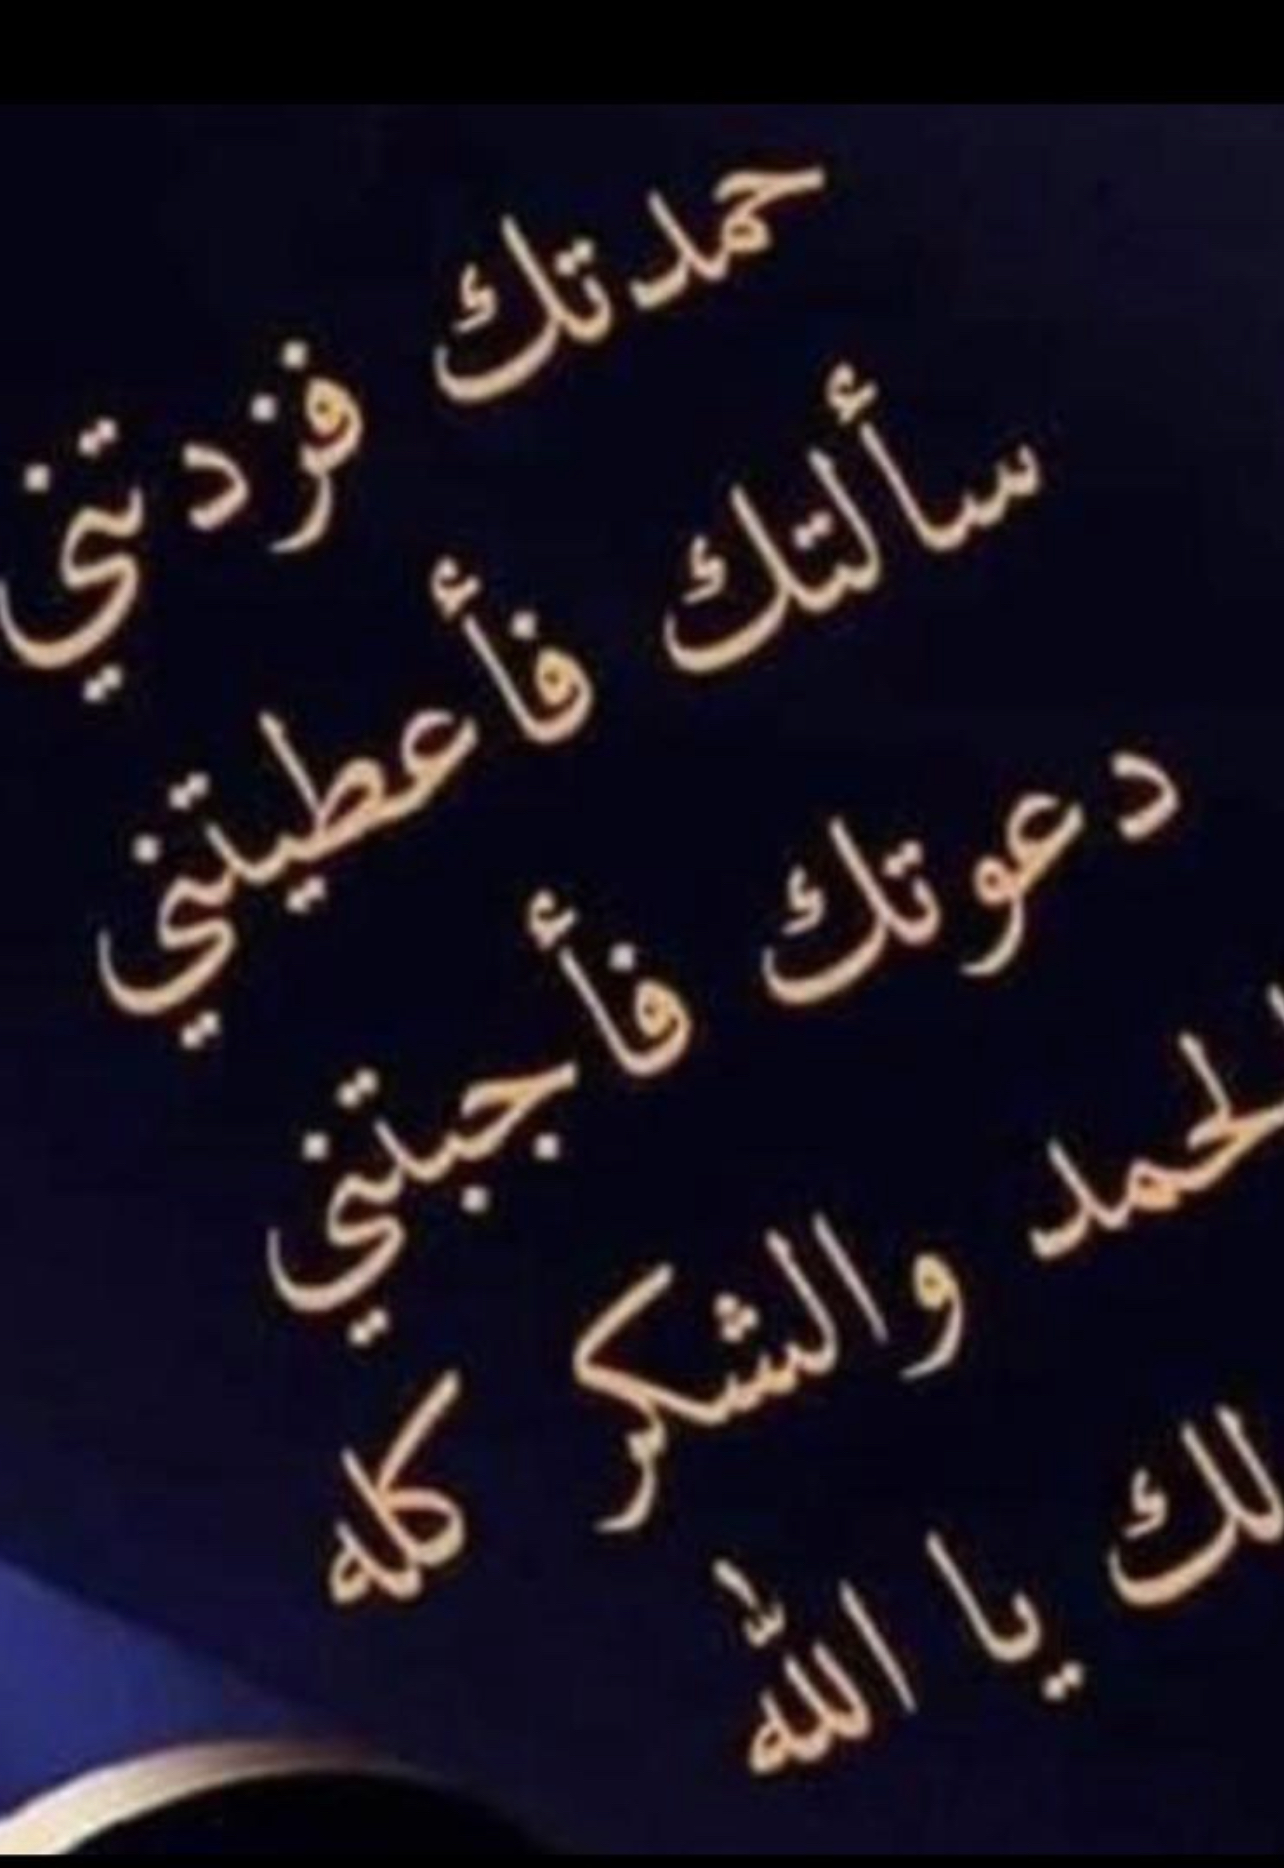 حمدتك فزدتني
سألتك فأعطيتني
دعوتك فأجبتني
الحمد والشكر كله
لك يا الله